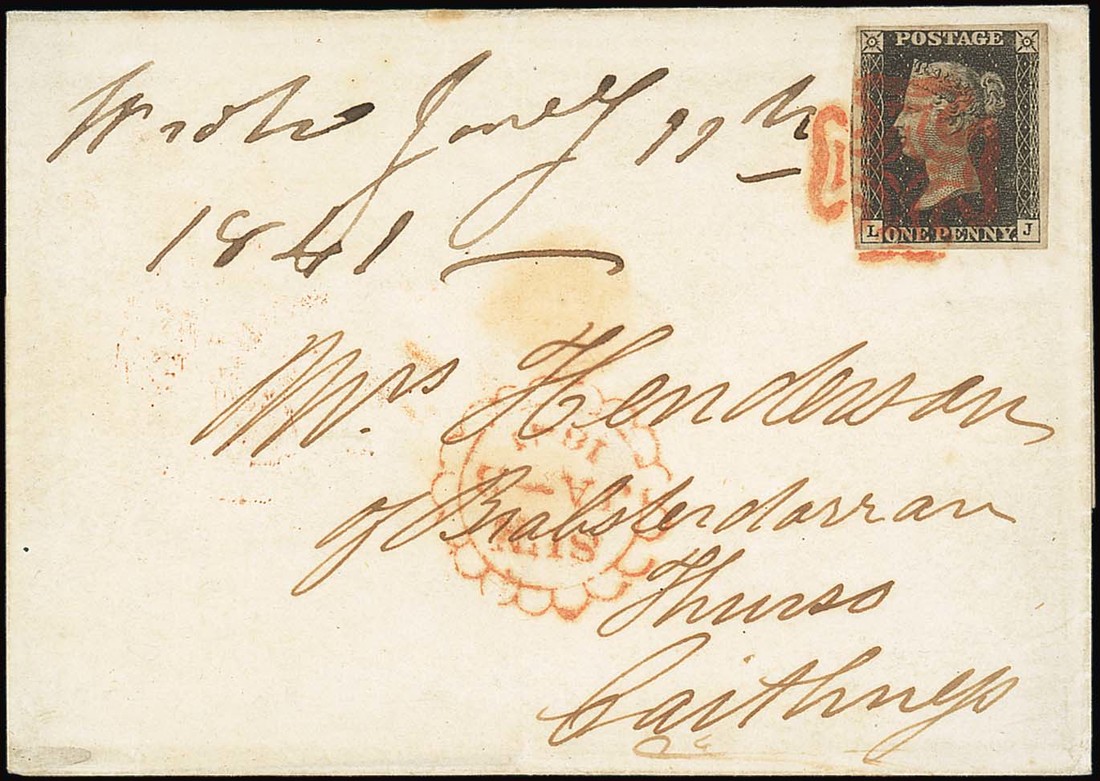 POSTAGE
ONE PENNY.
L J
Wrote Jany 11th
1841
Mrs Henderson
of Brabsterdorran
Thurso
Caithness
1841
JA